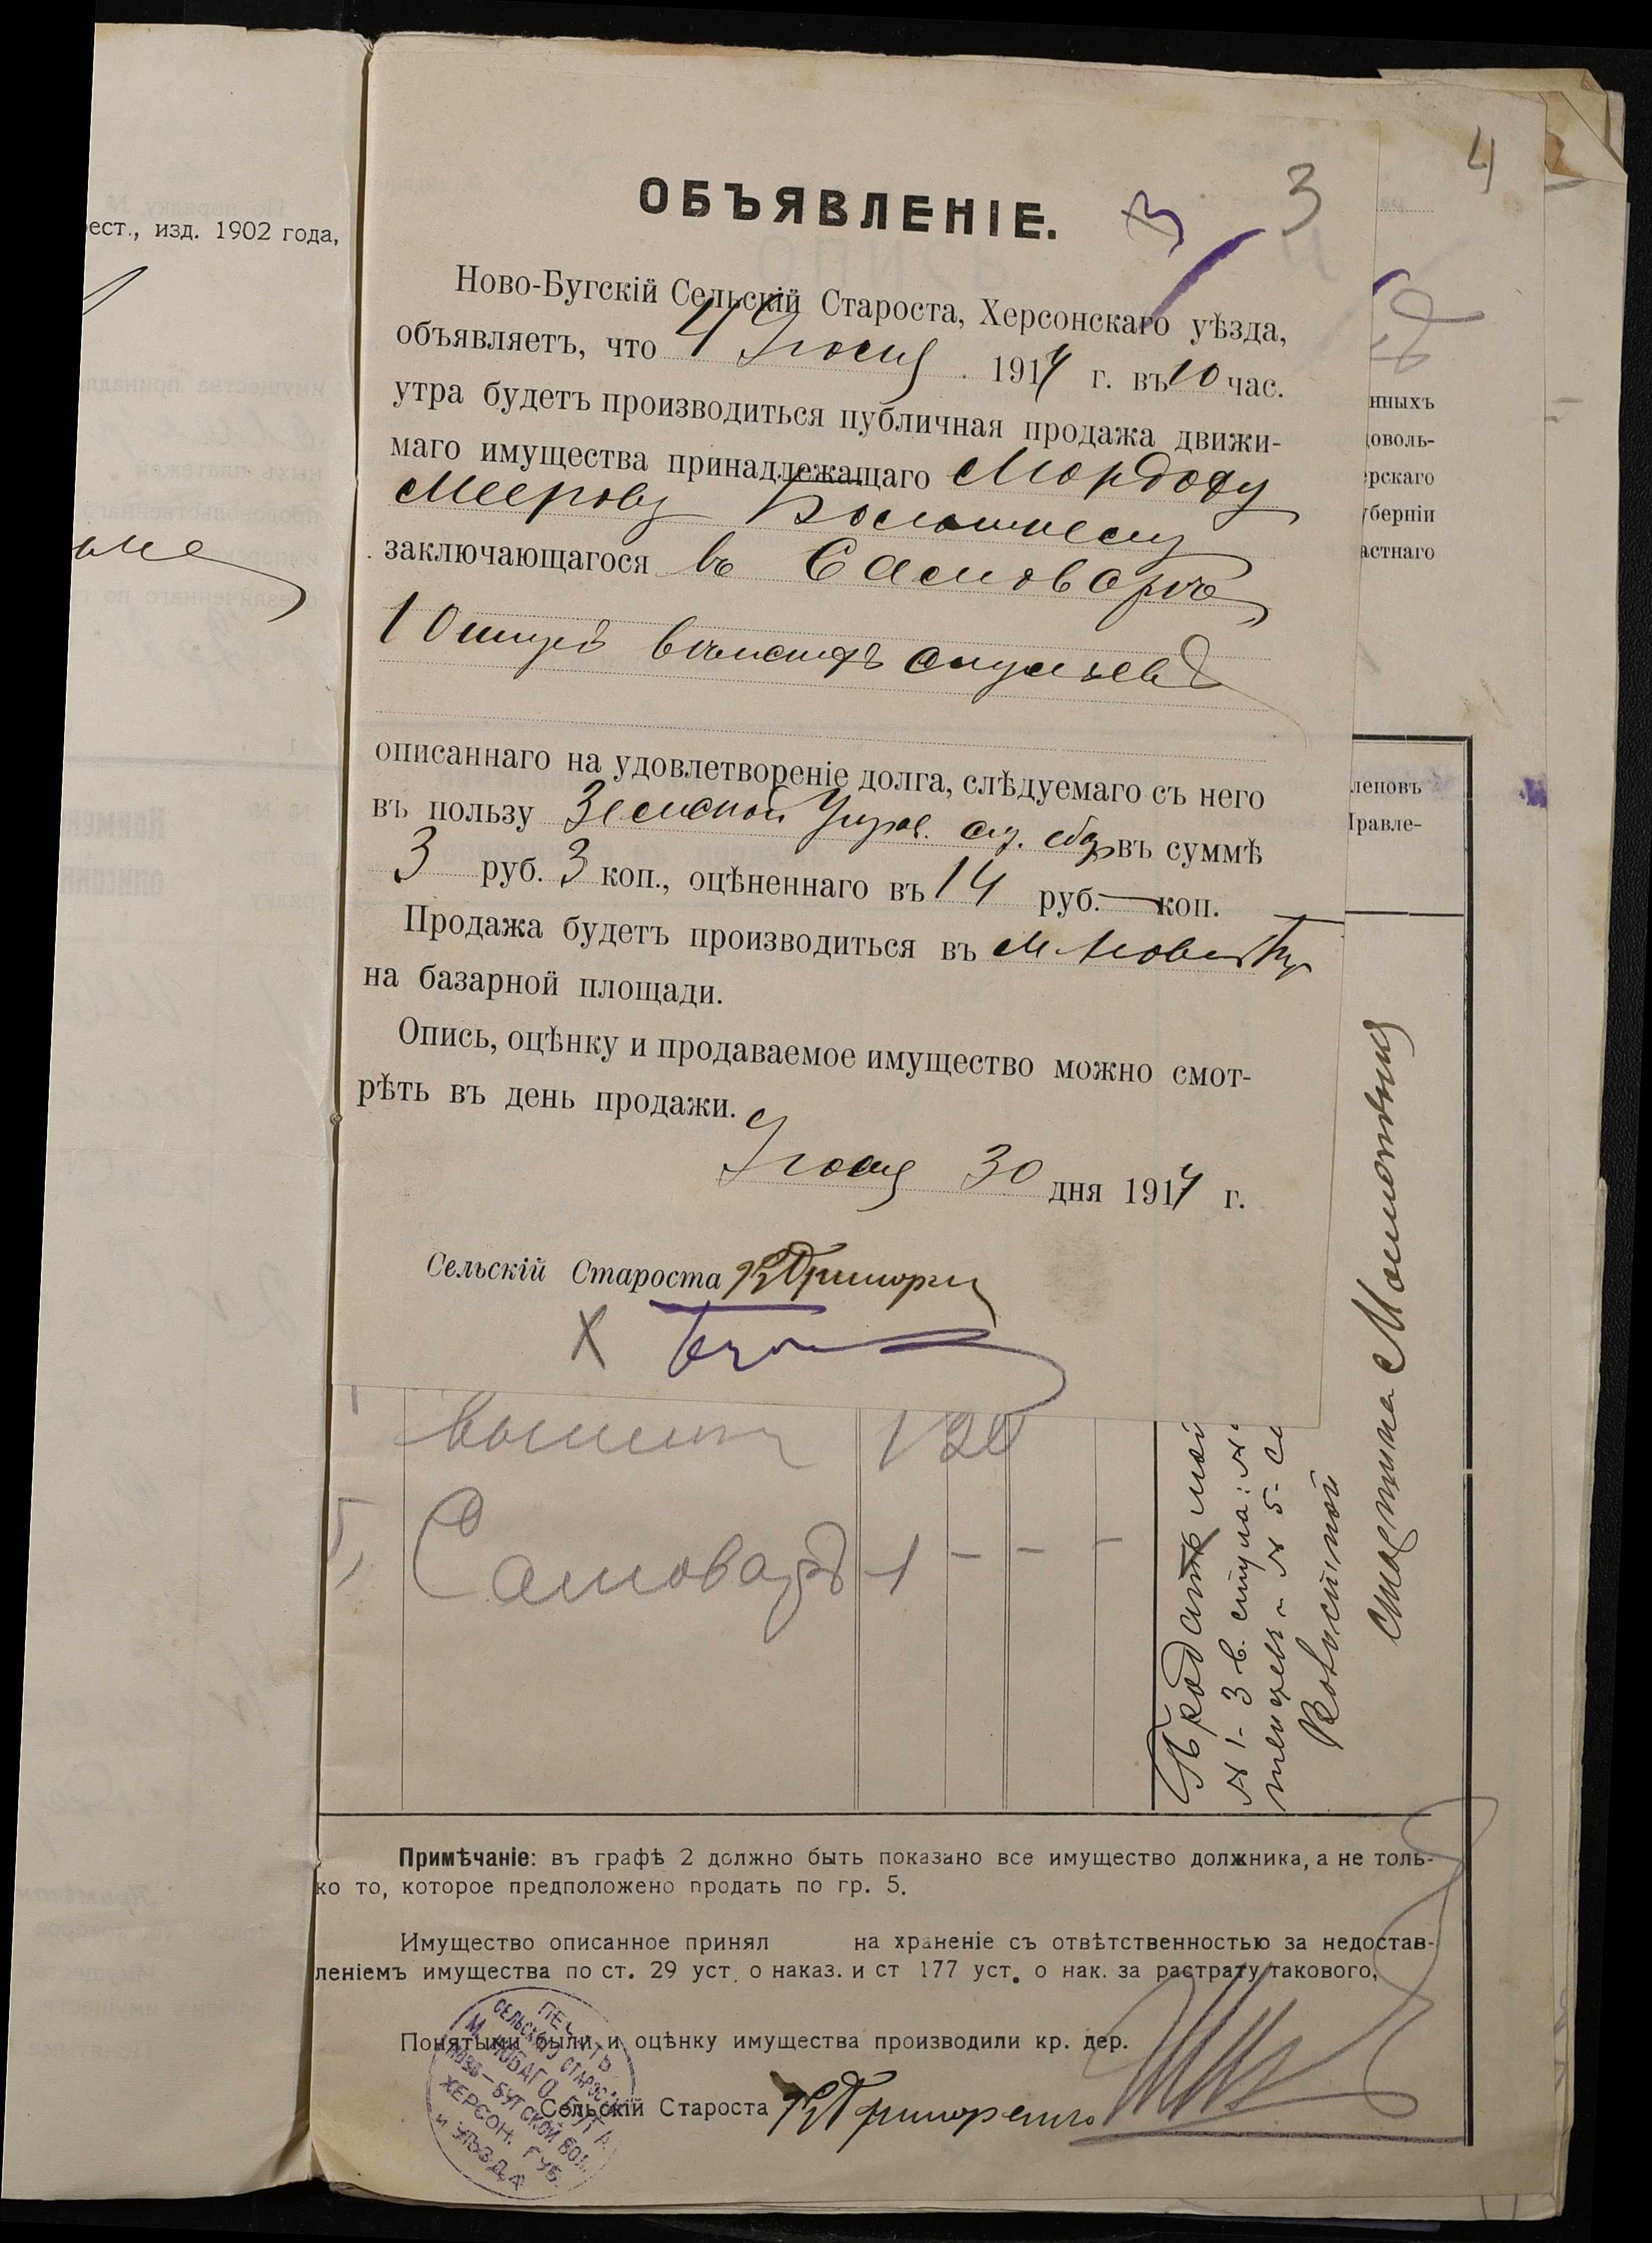 4
3
3
ОБЪЯВЛЕНІЕ.
ест., изд. 1902 года,
Ново-Бугскій Сельскій Староста, Херсонскаго уѣзда,
объявляетъ, что 1914 г. въ 10 час.
утра будетъ производиться публичная продажа движи-
маго имущества принадлежащаго Мордоху
Меерову
заключающагося въ Самоварѣ
10 штукъ стульевъ
описаннаго на удовлетвореніе долга, слѣдуемаго съ него
въ пользу Земской Управ. въ суммѣ
3 руб. 3 коп., оцѣненнаго въ 14 руб. — коп.
Продажа будетъ производиться въ м Новый Буг
на базарной площади.
Опись, оцѣнку и продаваемое имущество можно смот-
рѣть въ день продажи.
30 дня 1914 г.
Сельскій Староста
X
нныхъ
доволь-
ерскаго
уберніи
астнаго
леновъ
Правле-
120
5, Самоваръ 1 - - -
Продать
N 1- 3 в. стула: N
N 5- са
Примѣчаніе: въ графѣ 2 должно быть показано все имущество должника, а не толь-
ко то, которое предположено продать по гр. 5.
Имущество описанное принял на храненіе съ отвѣтственностью за недостав-
леніемъ имущества по ст. 29 уст. о наказ. и ст 177 уст. о нак. за растрату такового,
Понятыми были и оцѣнку имущества производили кр. дер.
Сельскій Староста
ПЕЧАТЬ
СЕЛЬСКАГО СТАРОСТЫ
М. НОВАГО БУГА
НОВО-БУГСКОЙ ВОЛ.
ХЕРСОН. ГУБ.
И УѢЗДА